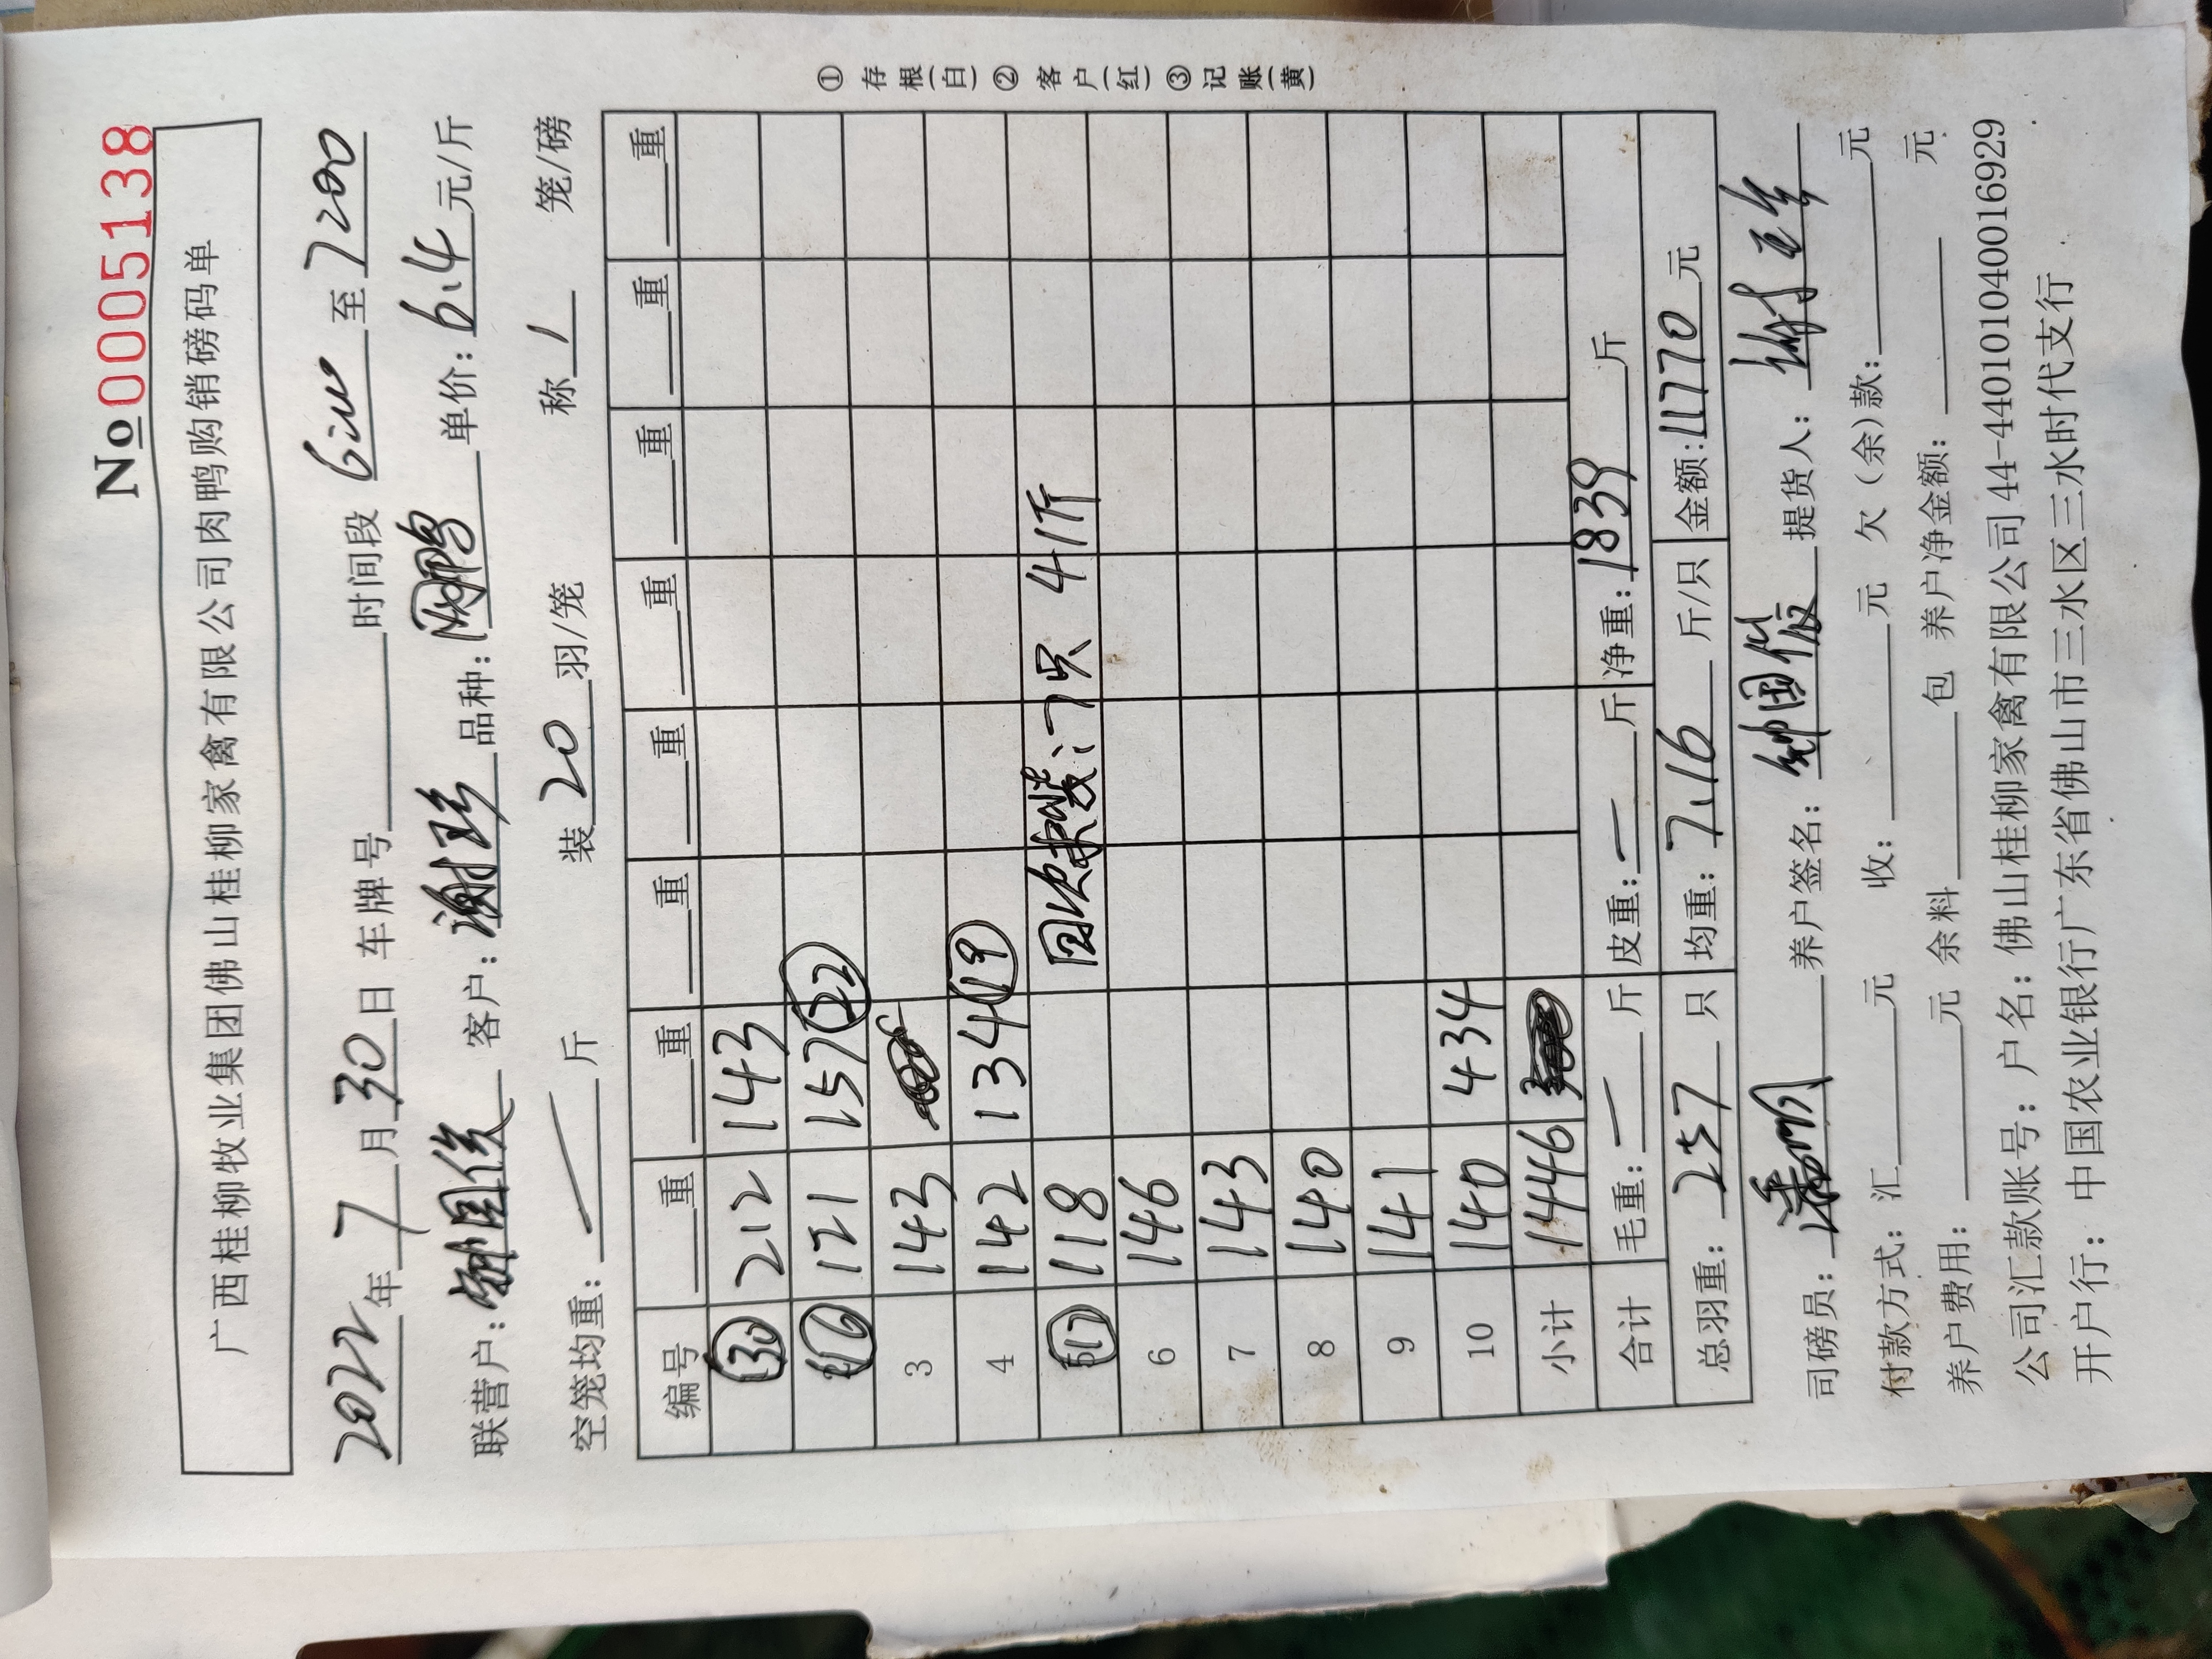 No 0005138
广西桂柳牧业集团佛山桂柳家禽有限公司肉鸭购销磅码单
2022年7月30日 车牌号 时间段 6:00 至 7200
联营户: 客户: 谢珍 品种: 网鸭 单价: 6.4 元/斤
空笼均重: / 斤 装 20 羽/笼 称 1 笼/磅
编号 重 重 重 重 重 重 重 重
(30) 212 143
(16) 121 157 (22)
3 143
4 142 134 (19)
(17) 118 回收 袋:7只 41斤
6 146
7 143
8 140
9 141
10 140 434
小计 1446
合计 毛重: — 斤 皮重: — 斤 净重: 1839 斤
总羽重: 257 只 均重: 7.16 斤/只 金额: 11770 元
司磅员: 潘明 养户签名: 提货人:
付款方式: 汇 元 收: 元 欠(余)款: 元
养户费用: 元 余料 包 养户净金额: 元
公司汇款账号: 户名: 佛山桂柳家禽有限公司44-440101040016929
开户行: 中国农业银行广东省佛山市三水区三水时代支行
①存根(白)②客户(红)③记账(黄)